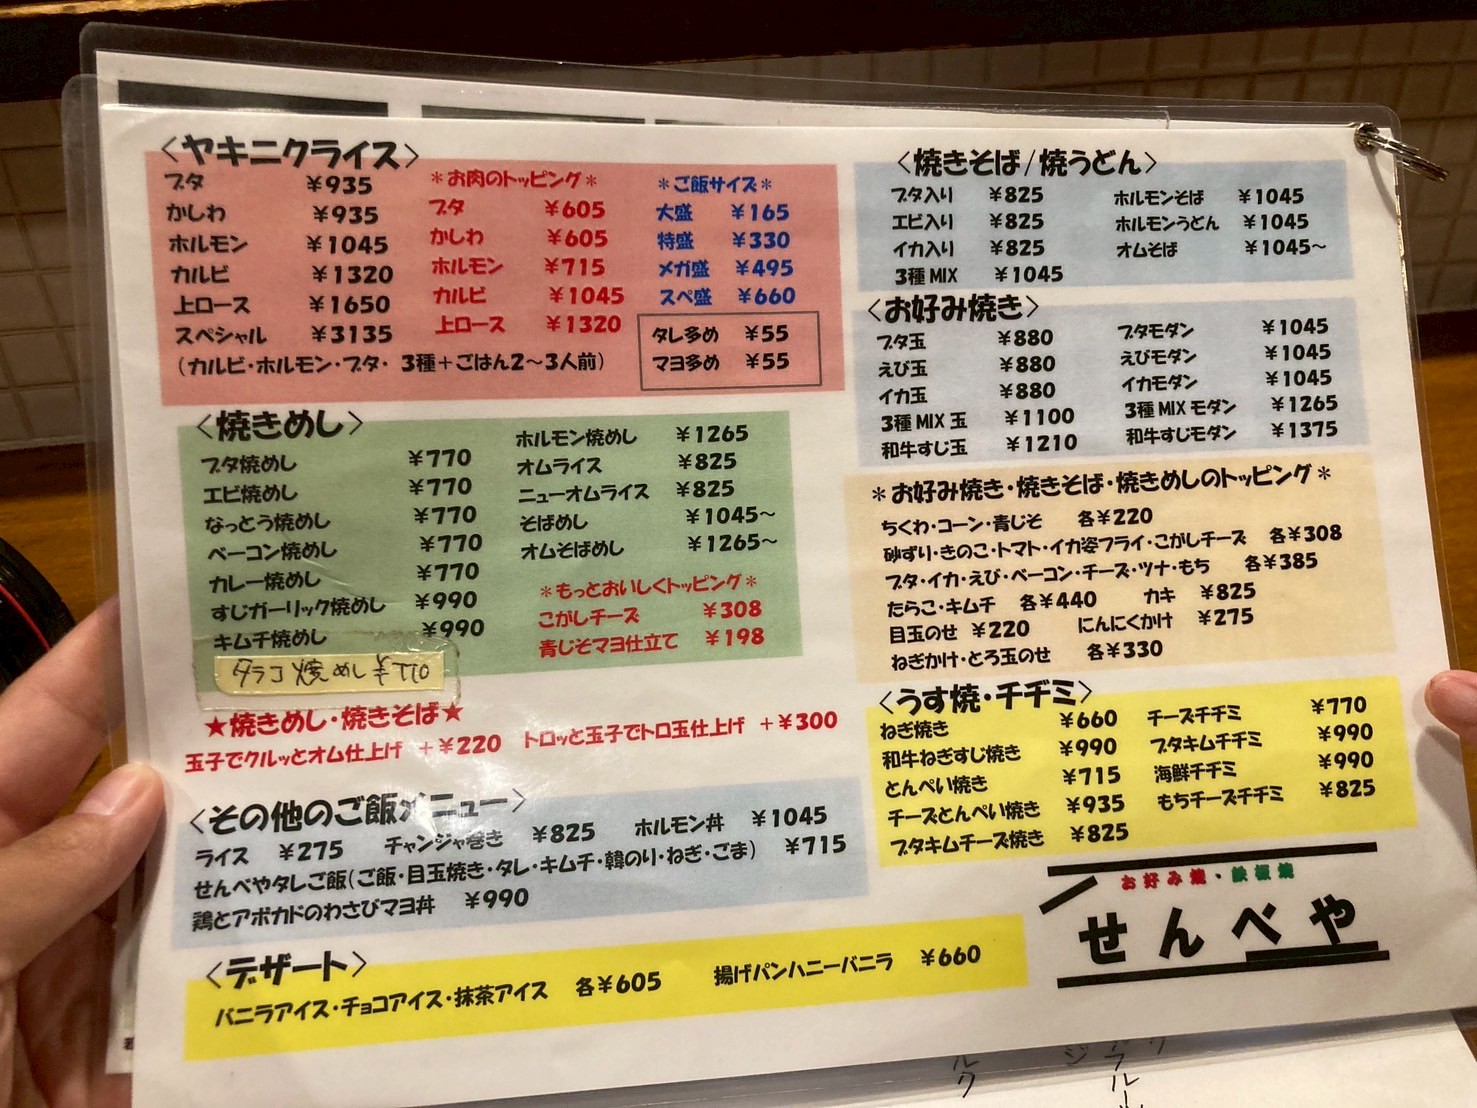 〈ヤキニクライス〉
ブタ ￥935
かしわ ￥935
ホルモン ￥1045
カルビ ￥1320
上ロース ￥1650
スペシャル ￥3135
(カルビ・ホルモン・ブタ・ 3種＋ごはん2～3人前)
＊お肉のトッピング＊
ブタ ￥605
かしわ ￥605
ホルモン ￥715
カルビ ￥1045
上ロース ￥1320
＊ご飯サイズ＊
大盛 ￥165
特盛 ￥330
メガ盛 ￥495
スペ盛 ￥660
タレ多め ￥55
マヨ多め ￥55
〈焼きめし〉
ブタ焼めし ￥770
エビ焼めし ￥770
なっとう焼めし ￥770
ベーコン焼めし ￥770
カレー焼めし ￥770
すじガーリック焼めし ￥990
キムチ焼めし ￥990
タラコ焼めし ￥770
ホルモン焼めし ￥1265
オムライス ￥825
ニューオムライス ￥825
そばめし ￥1045～
オムそばめし ￥1265～
＊もっとおいしくトッピング＊
こがしチーズ ￥308
青じそマヨ仕立て ￥198
★焼きめし・焼きそば★
玉子でクルッとオム仕上げ ＋￥220 トロッと玉子でトロ玉仕上げ ＋￥300
〈その他のご飯メニュー〉
ライス ￥275 チャンジャ巻き ￥825 ホルモン丼 ￥1045
せんべやタレご飯(ご飯・目玉焼き・タレ・キムチ・韓のり・ねぎ・ごま) ￥715
鶏とアボカドのわさびマヨ丼 ￥990
〈デザート〉
バニラアイス・チョコアイス・抹茶アイス 各￥605 揚げパンハニーバニラ ￥660
〈焼きそば/焼うどん〉
ブタ入り ￥825 ホルモンそば ￥1045
エビ入り ￥825 ホルモンうどん ￥1045
イカ入り ￥825 オムそば ￥1045～
3種MIX ￥1045
〈お好み焼き〉
ブタ玉 ￥880 ブタモダン ￥1045
えび玉 ￥880 えびモダン ￥1045
イカ玉 ￥880 イカモダン ￥1045
3種MIX玉 ￥1100 3種MIXモダン ￥1265
和牛すじ玉 ￥1210 和牛すじモダン ￥1375
＊お好み焼き・焼きそば・焼きめしのトッピング＊
ちくわ・コーン・青じそ 各￥220
砂ずり・きのこ・トマト・イカ姿フライ・こがしチーズ 各￥308
ブタ・イカ・えび・ベーコン・チーズ・ツナ・もち 各￥385
たらこ・キムチ 各￥440 カキ ￥825
目玉のせ ￥220 にんにくかけ ￥275
ねぎかけ・とろ玉のせ 各￥330
〈うす焼・チヂミ〉
ねぎ焼き ￥660 チーズチヂミ ￥770
和牛ねぎすじ焼き ￥990 ブタキムチヂミ ￥990
とんぺい焼き ￥715 海鮮チヂミ ￥990
チーズとんぺい焼き ￥935 もちチーズチヂミ ￥825
ブタキムチーズ焼き ￥825
お好み焼・鉄板焼
せんべや